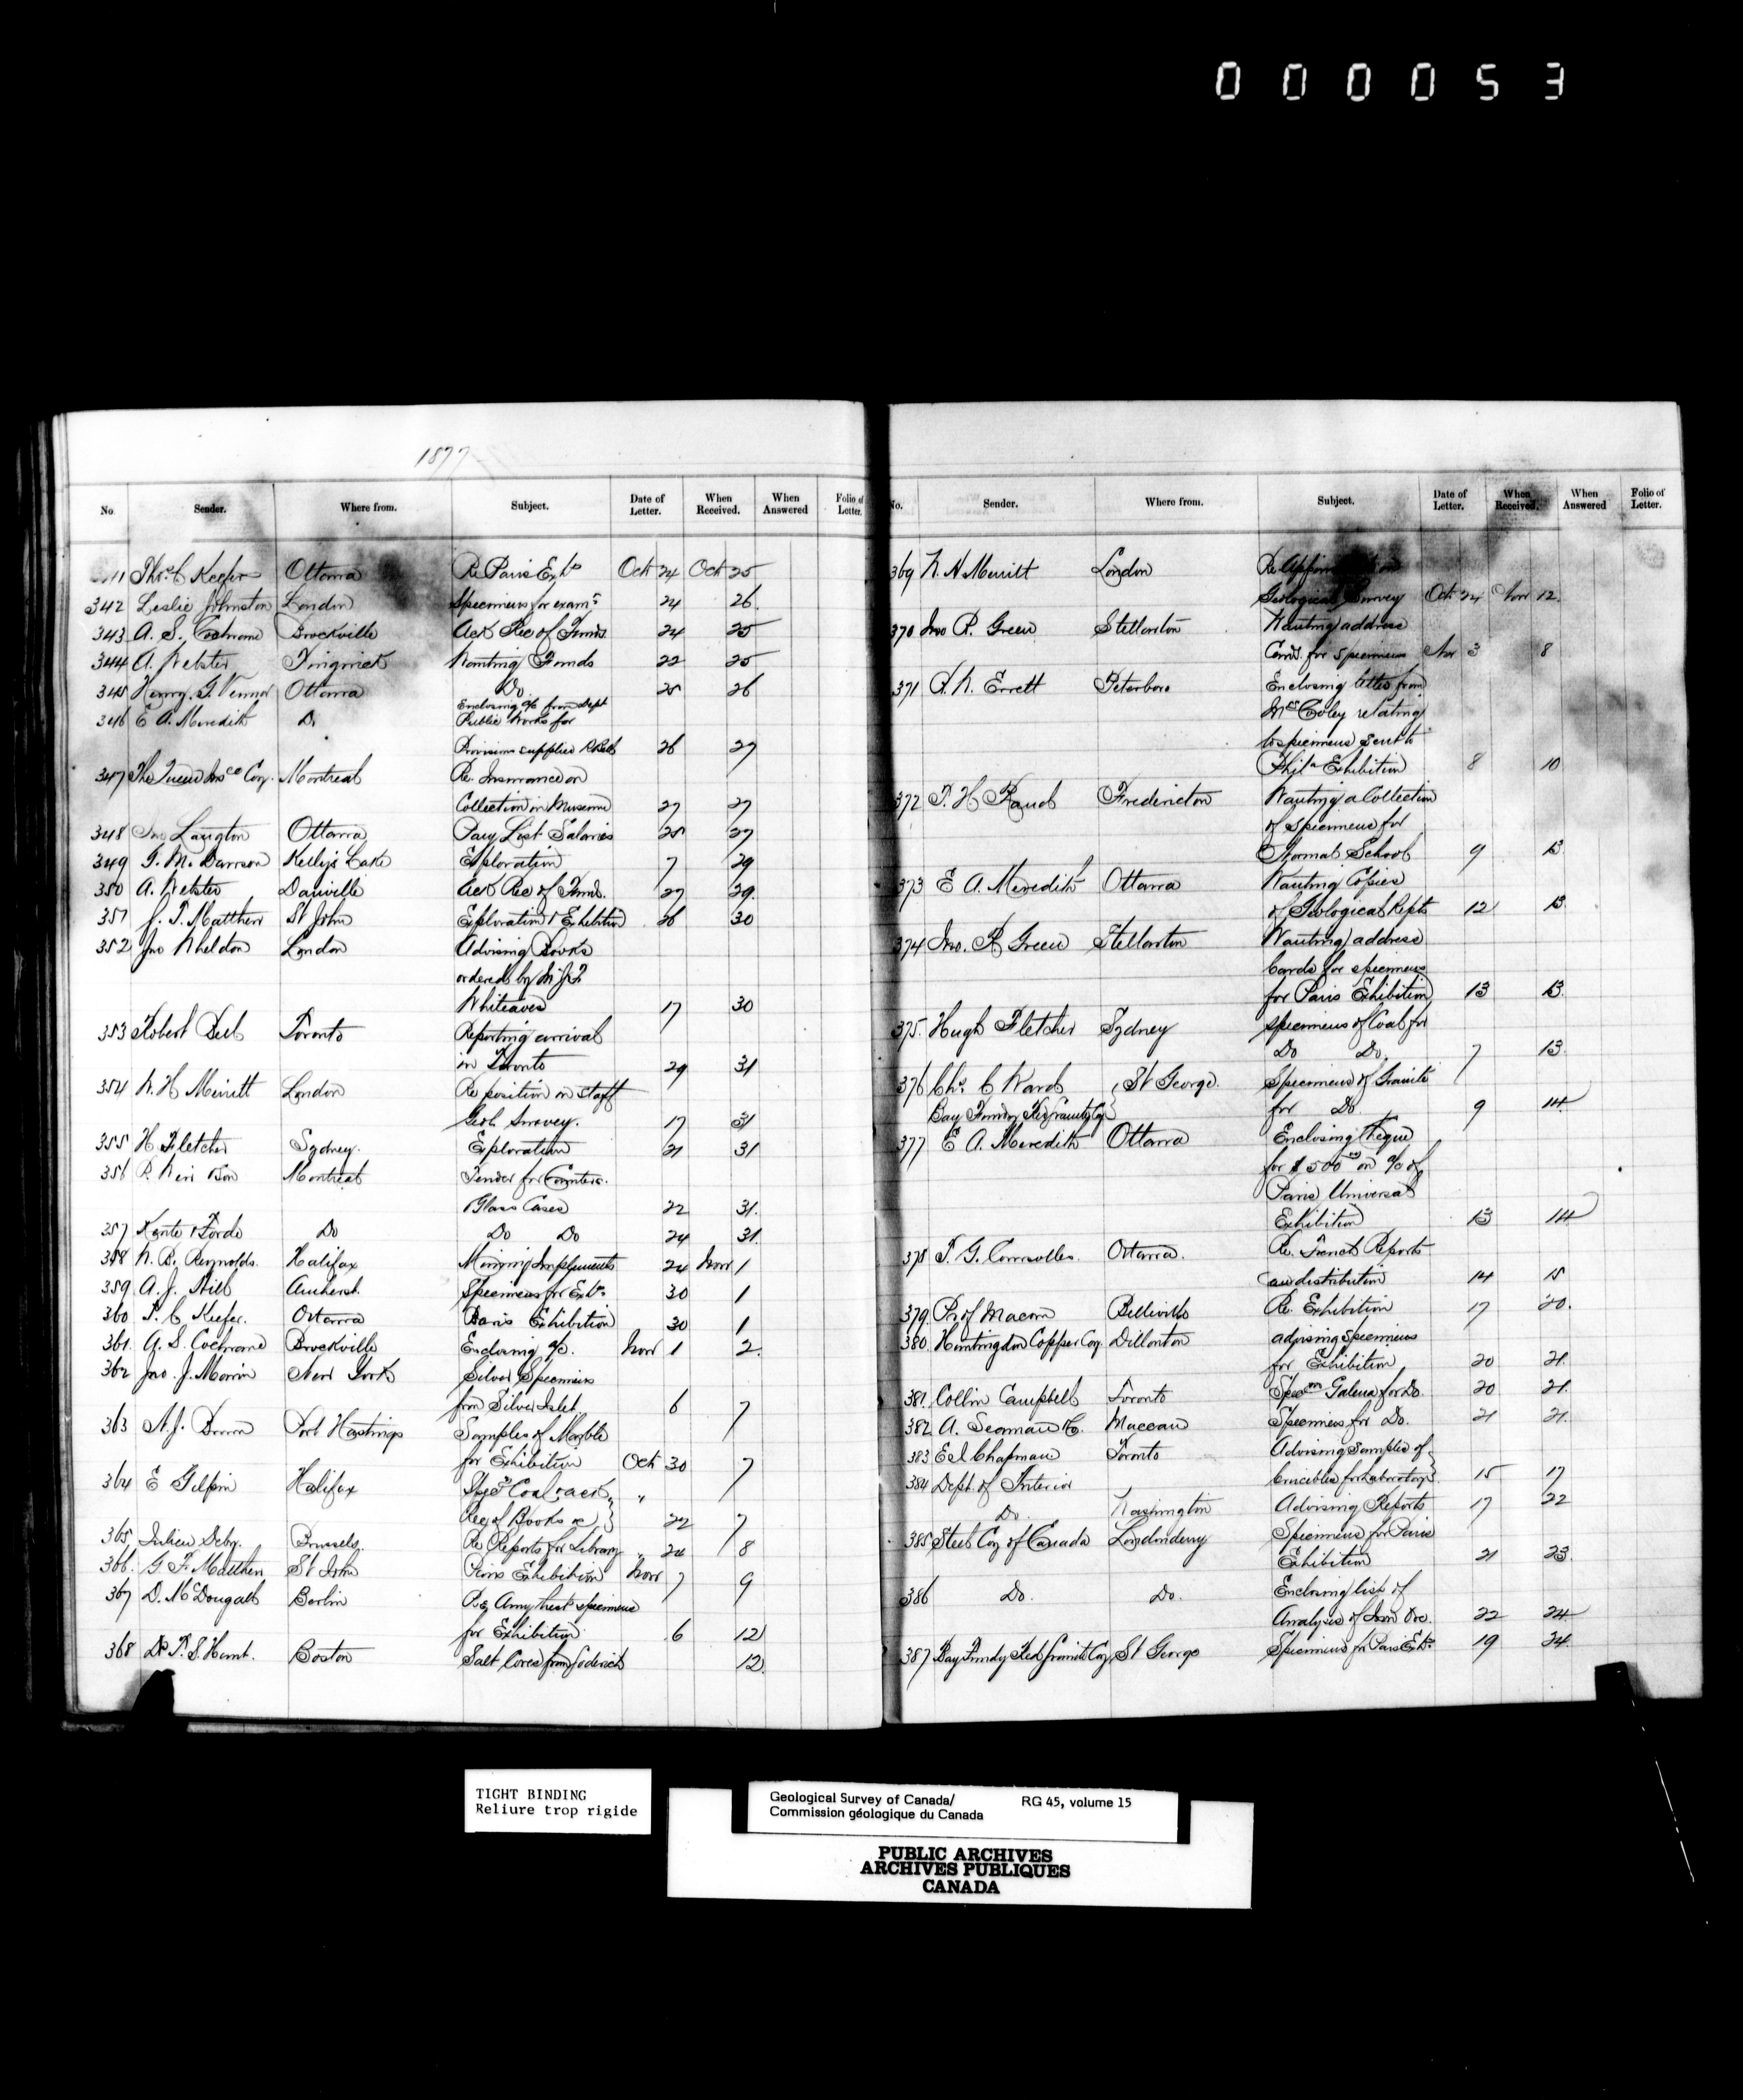 000053
1877
No. Sender. Where from. Subject. Date of Letter. When Received. When Answered Folio of Letter.
341 Thos C Keefer Ottawa Re Paris Exbn Oct 24 Oct 25
342 Leslie Johnston London Specimens for examn 24 26.
343 A. S. Cochrane Brockville Ack Rec of Funds. 24 25
344 A. Webster Tingwick Wanting Funds 22 25
345 Henry. G. Vennor Ottawa Do. 25 26
346 E A. Meredith Do Enclosing a/c from Dept
Public Works for
Provisions supplied R Bell 26 27
347 The Queen Insce Coy. Montreal Re. Insurance on
Collection in Museum 27 27
348 Jno Langton Ottawa Pay List Salaries 25 27
349 G. M. Dawson Kelly's Lake Exploration 7 29
350 A. Webster Danville Ack Rec of Funds. 27 29.
351 G. F. Matthew St John Exploration & Exhibition 26 30
352 Jno Wheldon London Advising Books
ordered by Mr J F
Whiteaves 17 30
353 Robert Bell Toronto Reporting arrival
in Toronto 29 31
354 W. H Merritt London Re position on staff
Geol. Survey. 17 31
355 H. Fletcher Sydney. Exploration 21 31
356 R. Weir & Son Montreal Tender for Counters.
Glass Cases 22 31.
357 & Forde Do Do Do 24 31.
358 W. B. Reynolds. Halifax Mining Implements 24 Nov 1
359 A. J. Hill Amherst. Specimens for Exbn. 30 1
360 T. C Keefer. Ottawa Paris Exhibition 30 1
361. A. S. Cochrane Brockville Enclosing a/c. Nov 1 2.
362 Jno. J. Morrin New York Silver Specimens
from Silver Islet 6 7
363 Port Hastings Samples of Marble
for Exhibition Oct 30 7
364 E Gilpin Halifax Coal & ack " "
Rec of Books &c } 22 7
365. Julien Deby. Brussels. Re Reports for Library " 24 8
366. G. F. Matthew St John Paris Exhibition Nov 7 9
367 D. McDougall Berlin Re Amythest specimens
for Exhibition 6 12
368 Dr T. S. Hunt. Boston Salt Cores from Goderich 12.
No. Sender. Where from. Subject. Date of Letter. When Received. When Answered Folio of Letter.
369 W. H Merritt London Re. on
Geological Survey Oct 24 Nov 12.
370 Jno R. Green Stellarton Wanting address
Cards for Specimens Nov 3 8
371 R. W. Errett Peterboro Enclosing letter from
Mrs relating
to specimens sent to
Phila Exhibition 8 10
372 T. H Rand Fredericton Wanting a Collection
of specimens for
Normal School 9 13.
373 E A. Meredith Ottawa Wanting Copies
of Geological Repts 12 13.
374 Jno. R Green Stellarton Wanting address
Cards for specimens
for Paris Exhibition 13 13.
375. Hugh Fletcher Sydney Specimens of Coal for
Do Do. 7 13.
376 Chs. C Ward St George. Specimens of Granite
Bay Fundy Red Granite Coy } for Do 9 14
377 E A. Meredith Ottawa Enclosing Cheque
for $500 00 on a/c of
Paris Universal
Exhibition 13 14
378 T. G. Coursolles. Ottawa. Re. French Reports
and distribution 14 15
379. Prof Macoun Belleville Re. Exhibition 17 20.
380. Huntingdon Copper Coy Dillonton advising Specimens
for Exhibition 20 21.
381. Collin Campbell Toronto Specmn Galena for Do 20 21.
382 A. Seaman & Co. Maccan Specimens for Do. 21 21.
383 E & J Chapman Toronto Advising samples of
Crucibles for Laboratory } 15 17
384 Dept. of Interior
Do. Washington Advising Reports 17 22
385 Steel Coy of Canada Londonderry Specimens for Paris
Exhibition 21 23.
386 Do. Do. Enclosing list of
Analysis of Iron Ore. 22 24
387 Bay Fundy Red Granite Coy, St George Specimens for Paris Exbn. 19 24
TIGHT BINDING
Reliure trop rigide
Geological Survey of Canada/ RG 45, volume 15
Commission géologique du Canada
PUBLIC ARCHIVES
ARCHIVES PUBLIQUES
CANADA